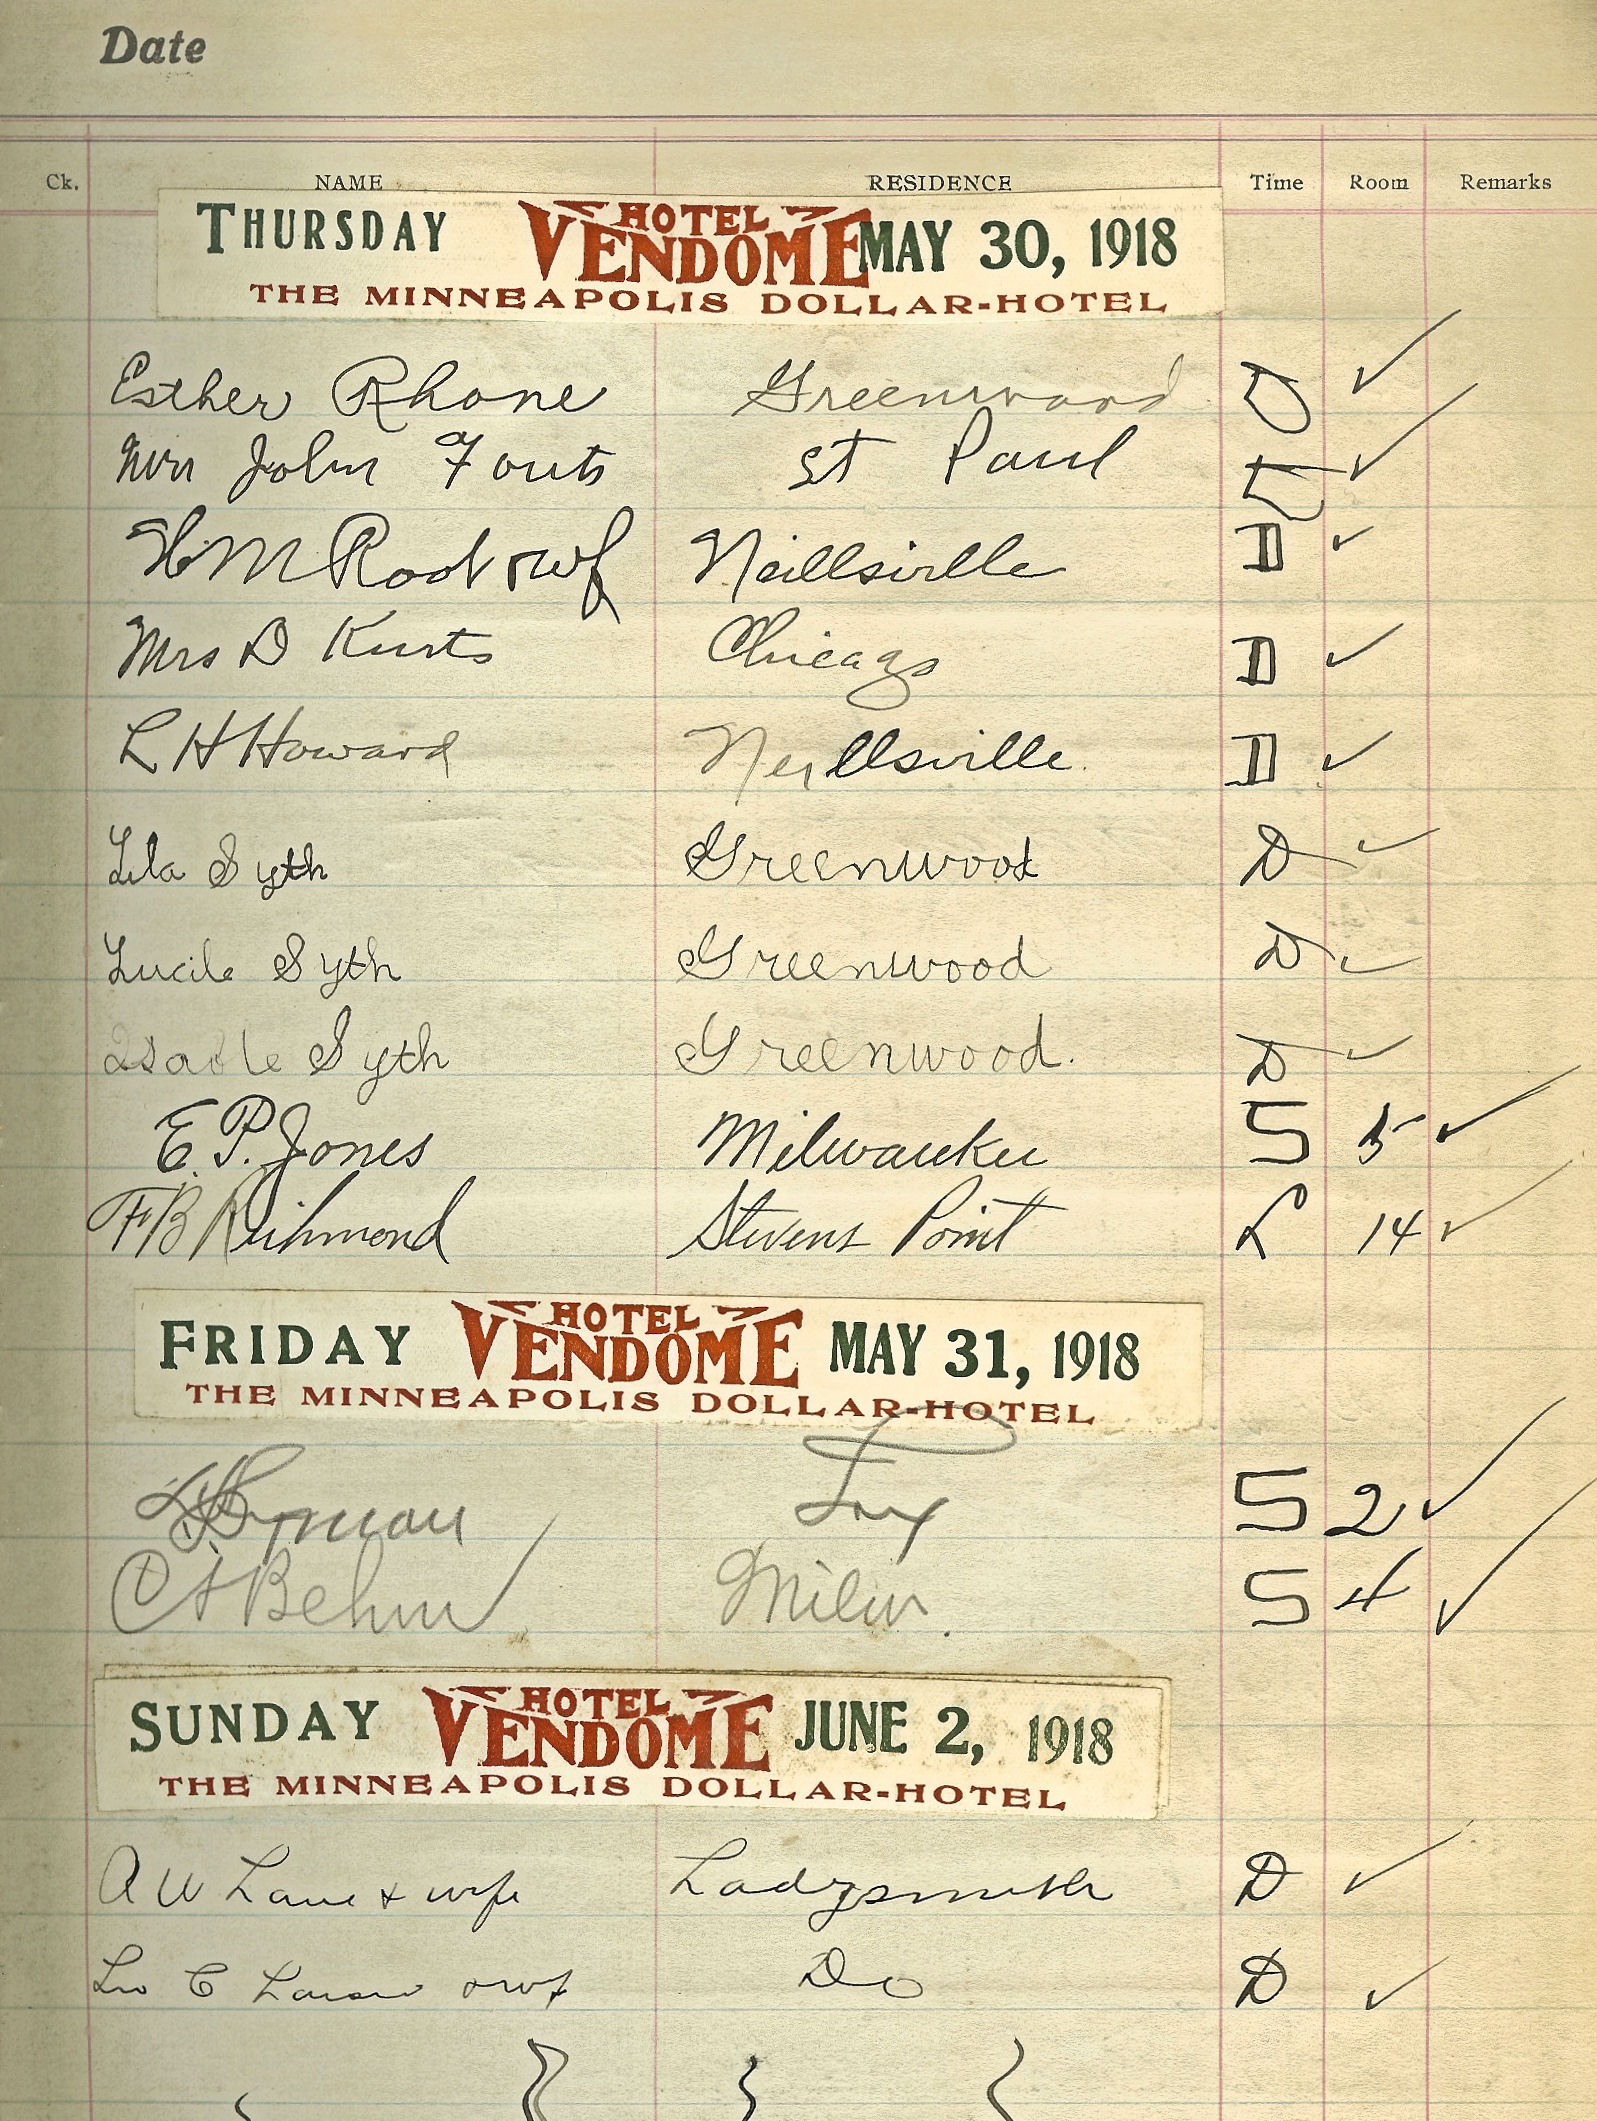 Date
Ck. NAME RESIDENCE Time Room Remarks
THURSDAY HOTEL VENDOME MAY 30, 1918
THE MINNEAPOLIS DOLLAR-HOTEL
Esther Rhone Greenwood D ✓
Mrs John Fouts St Paul D ✓
H M Root & wf Neillsville D ✓
Mrs D Kurts Chicago D ✓
L H Howard Neillsville D ✓
Lila Syth Greenwood D ✓
Lucile Syth Greenwood D ✓
Isable Syth Greenwood. D ✓
E. P. Jones Milwaukee S 5 ✓
F B Richmond Stevens Point L 14 ✓
FRIDAY HOTEL VENDOME MAY 31, 1918
THE MINNEAPOLIS DOLLAR-HOTEL
S 2 ✓
Behm Milw. S 4 ✓
SUNDAY HOTEL VENDOME JUNE 2, 1918
THE MINNEAPOLIS DOLLAR-HOTEL
A W Lane & wife Ladysmith D ✓
C & wf Do D ✓